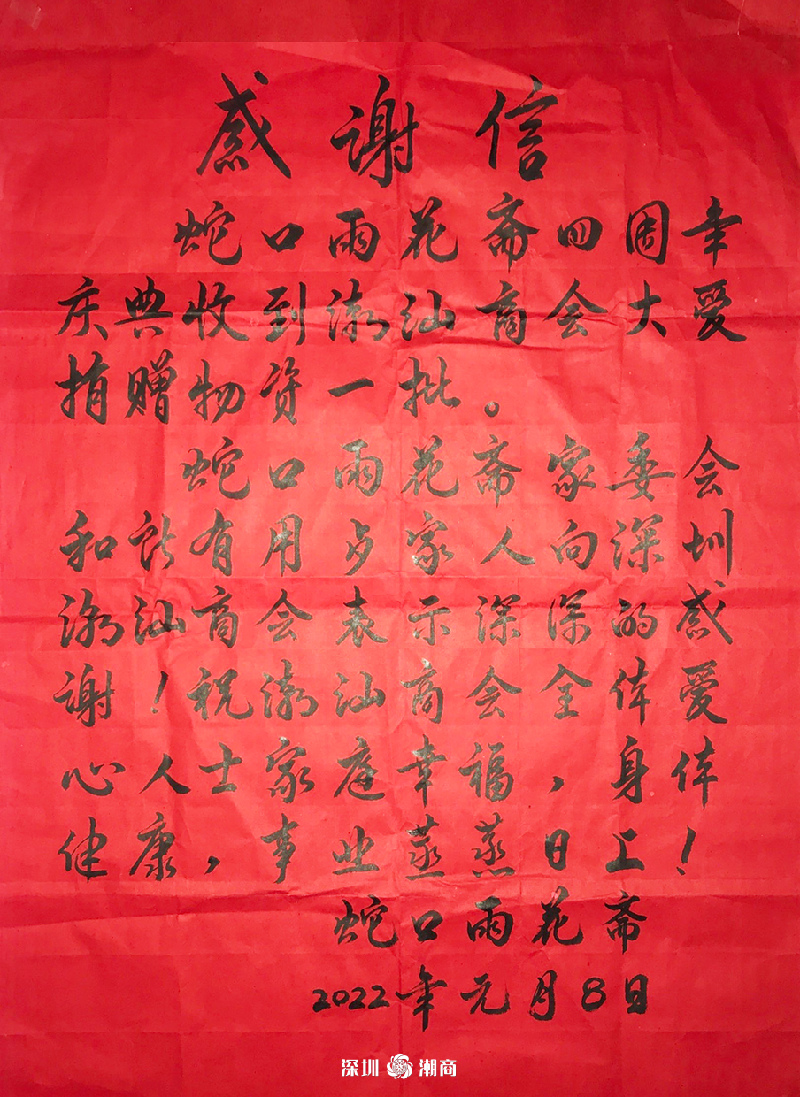 感谢信
蛇口雨花斋四周年
庆典收到潮汕商会大爱
捐赠物资一批。
蛇口雨花斋家委会
和所有用户家人向深圳
潮汕商会表示深深的感
谢！祝潮汕商会全体爱
心人士家庭幸福，身体
健康，事业蒸蒸日上！
蛇口雨花斋
2022年元月8日
深圳潮商